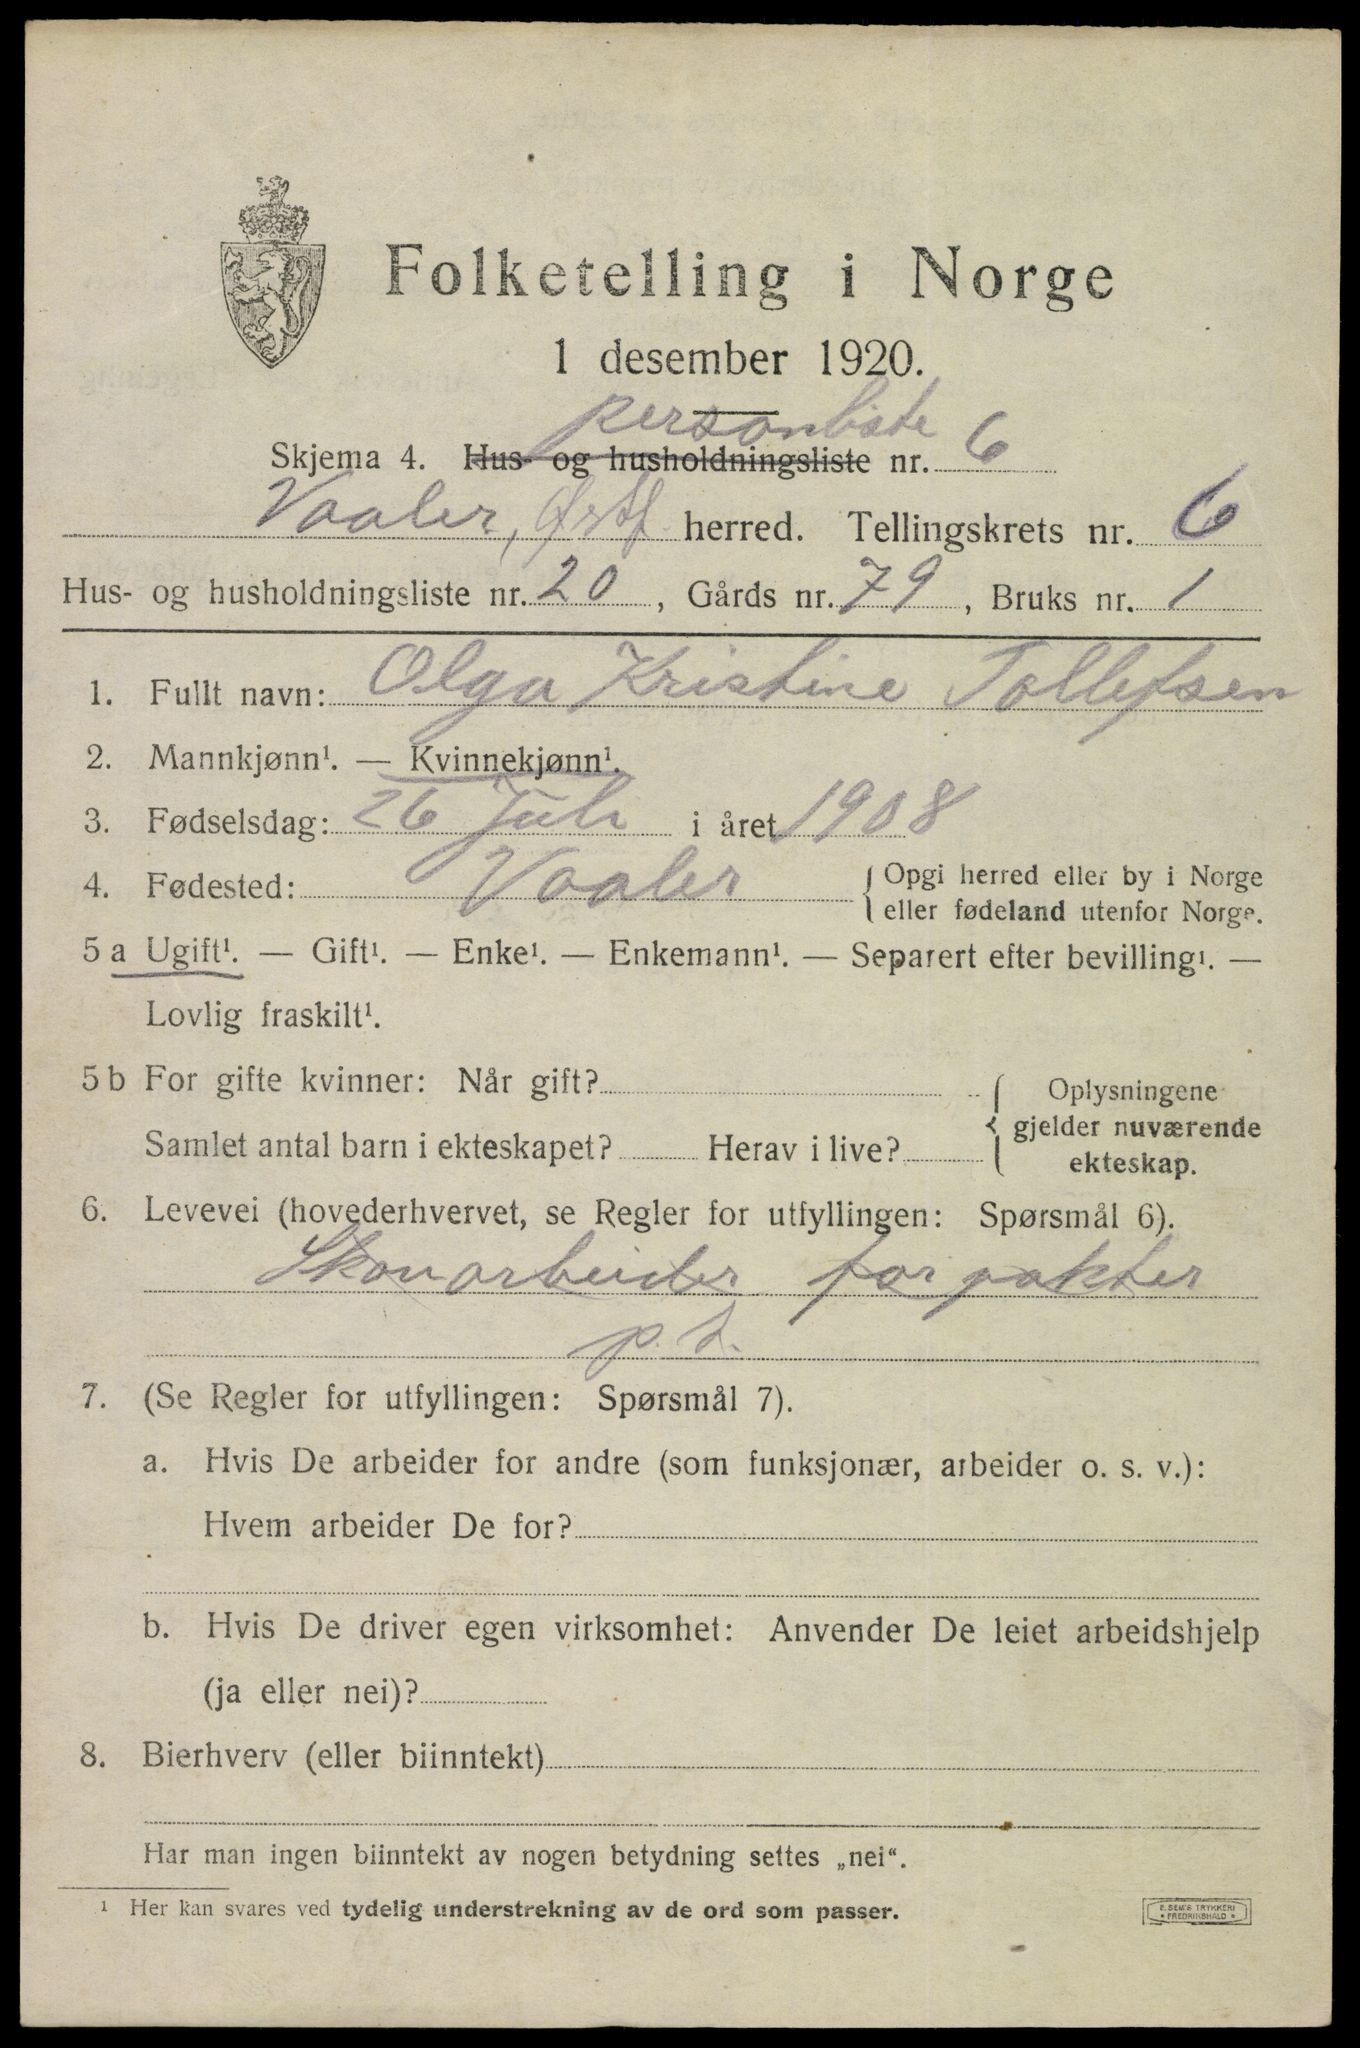 Folketelling i Norge
1 desember 1920.
Personliste
Skjema 4. Hus- og husholdningsliste nr. 6
Vaaler, Østf. herred. Tellingskrets nr. 6
Hus- og husholdningsliste nr. 20, Gårds nr. 79, Bruks nr. 1
1. Fullt navn: Olga Kristine Tollefsen
2. Mannkjønn¹. — Kvinnekjønn¹.
3. Fødselsdag: 26 Juli i året 1908
4. Fødested: Vaaler { Opgi herred eller by i Norge
eller fødeland utenfor Norge.
5 a Ugift¹. — Gift¹. — Enke¹. — Enkemann¹. — Separert efter bevilling¹. —
Lovlig fraskilt¹.
5 b For gifte kvinner: Når gift?
Samlet antal barn i ekteskapet? Herav i live?
{ Oplysningene
gjelder nuværende
ekteskap.
6. Levevei (hovederhvervet, se Regler for utfyllingen: Spørsmål 6).
Skovarbeider forpakter
7. (Se Regler for utfyllingen: Spørsmål 7).
a. Hvis De arbeider for andre (som funksjonær, arbeider o. s. v.):
Hvem arbeider De for?
b. Hvis De driver egen virksomhet: Anvender De leiet arbeidshjelp
(ja eller nei)?
8. Bierhverv (eller biinntekt)
Har man ingen biinntekt av nogen betydning settes „nei“.
¹ Her kan svares ved tydelig understrekning av de ord som passer.
E. SEM'S TRYKKERI
* FREDRIKSHALD *